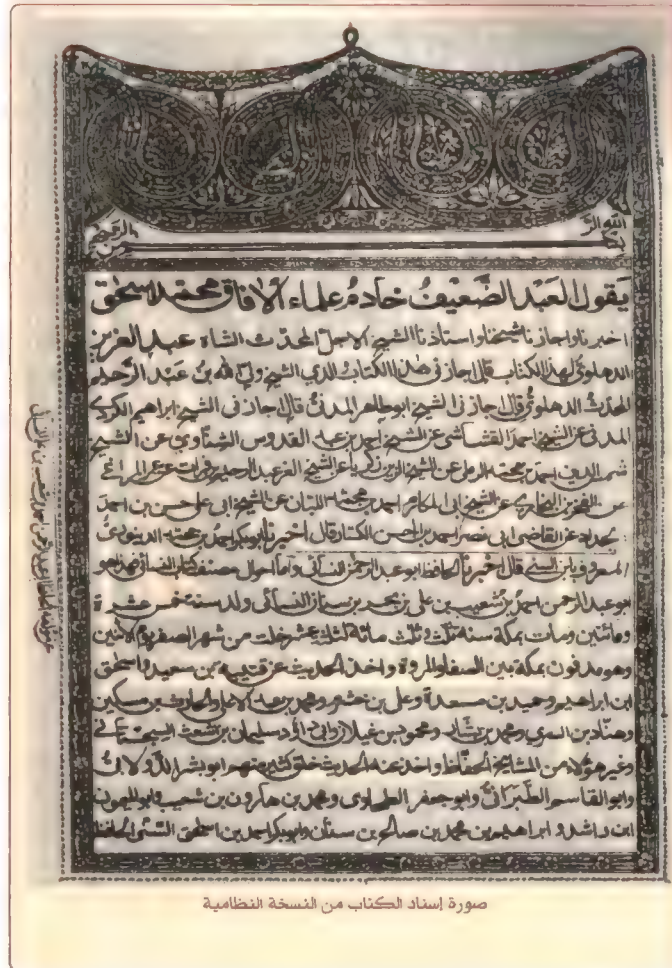 يقول العبد الضعيف خادم علماء الآفاق محمد اسحٰق
اخبرنا واجازنا شيخنا واستاذنا الشيخ الاجل المحدث الشاه عبد العزيز
الدهلوي لهذا الكتاب قال اجازنى هذا الكتاب الدي الشيخ ولي الله بن عبد الرحيم
المحدث الدهلوي قال اجازنى الشيخ ابو طاهر المدنى قال اجازنى الشيخ ابراهيم الكردي
المدنى عن الشيخ احمد القشاشى عن الشيخ احمد بن عبد القدوس الشناوي عن الشيخ
شمس الدين احمد بن محمد الرملى عن الشيخ الزين زكريا عن الشيخ العز عبد الرحيم بن فرات عن عمر المراغى
عن الفخر بن البخارى عن الشيخ ابى المكارم احمد بن محمد اللبان عن الشيخ ابى على حسن بن احمد
الحداد عن القاضى ابى نصر احمد بن الحسن الكسار قال اخبرنا ابو بكر احمد بن محمد الدينورى
المعروف بابن السنى قال اخبرنا الحافظ ابو عبد الرحمن النسائى واما احوال مصنف كتاب النسائى فهو
ابو عبد الرحمن احمد بن شعيب بن على بن بحر بن سنان النسائى ولد سنة خمس عشرة
ومائتين ومات بمكة سنة ثلث وثلث مائة لثلث عشر خلت من شهر الصفر يوم الاثنين
وهو مدفون بمكة بين الصفا والمروة واخذ الحديث عن قتيبة بن سعيد واسحق
ابن ابراهيم وحميد بن مسعدة وعلى بن خشرم ومحمد بن عبد الاعلى والحارث بن مسكين
وهناد بن السري ومحمد بن بشار ومحمود بن غيلان وابى داؤد سليمان بن اشعث السجستانى
وغير هؤلاء من المشايخ الحفاظ واخذ عنه الحديث خلق كثير منهم ابو بشر الدولابى
وابو القاسم الطبرانى وابو جعفر الطحاوى ومحمد بن هارون بن شعيب وابو الميمون
ابن راشد و ابراهيم بن محمد بن صالح بن سنان وابو بكر احمد بن اسحق السنى الحافظ
صورة إسناد الكتاب من النسخة النظامية